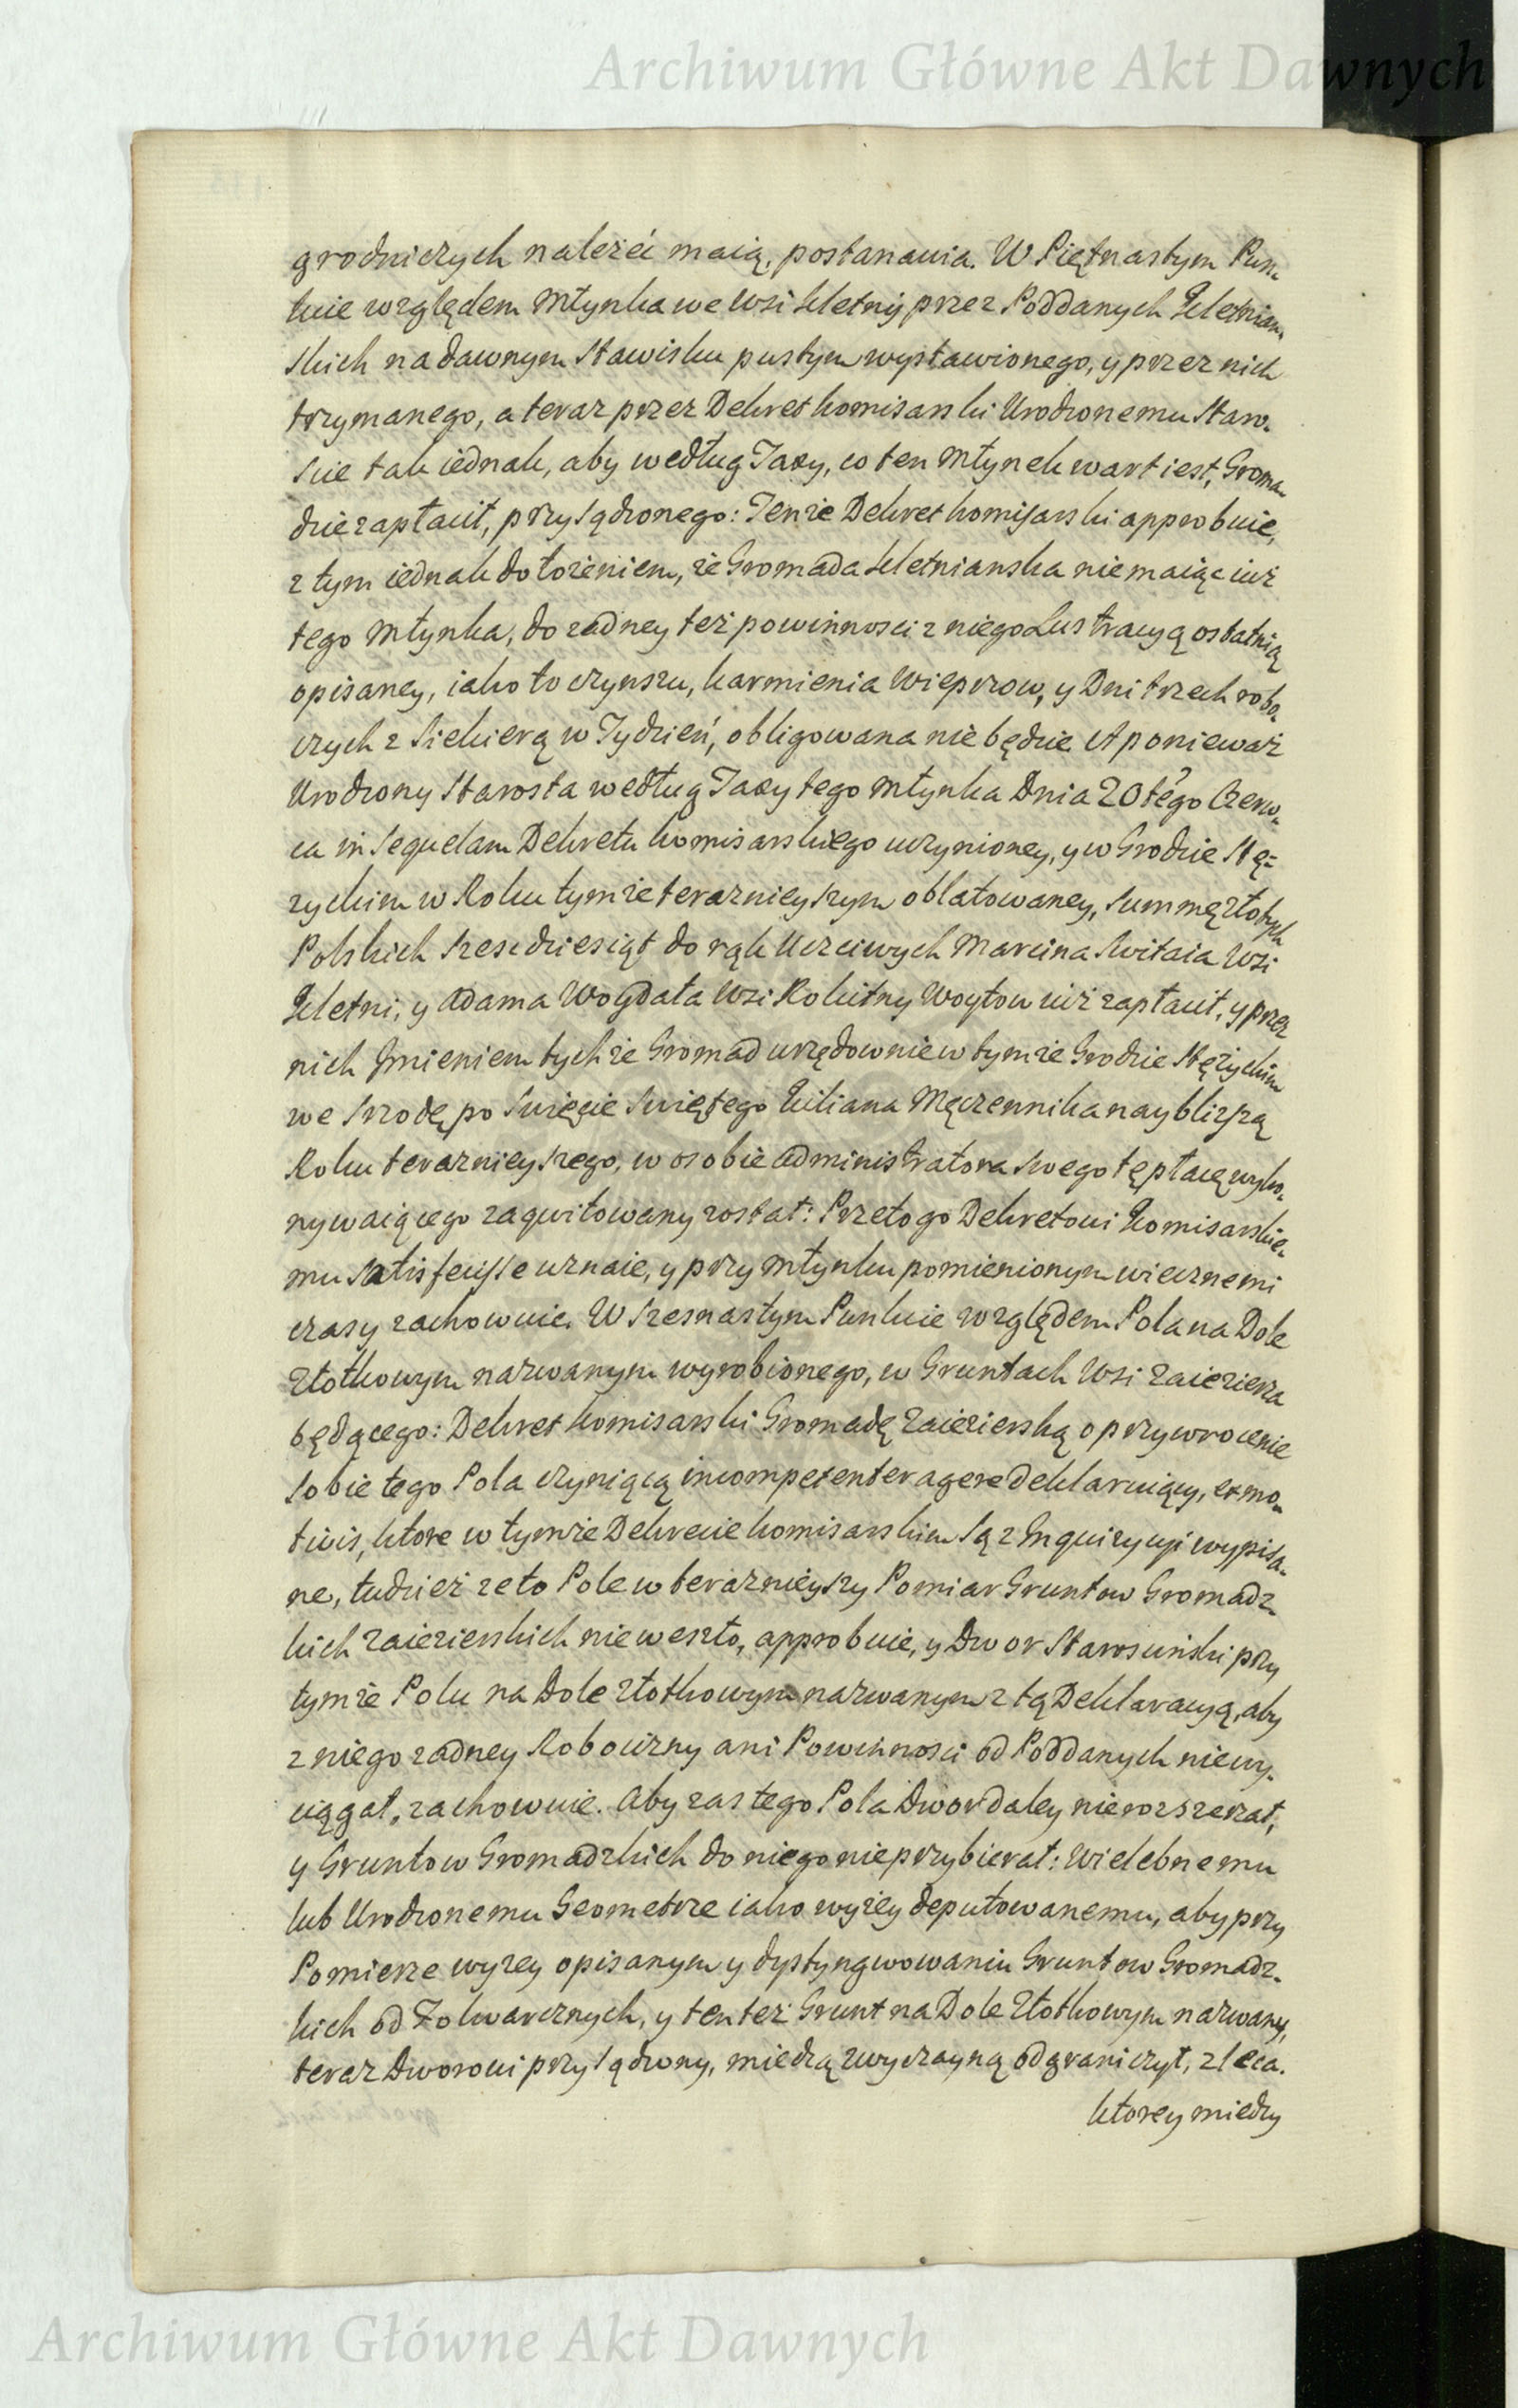 Archiwum Główne Akt Dawnych
grodniczych należéć maią, postanawia. W Piętnastym Pun-
kcie względem Młynka we Wsi Kletny przez Poddanych Kletnian-
skich na dawnym Stawisku pustym wystawionego, y przez nich
trzymanego, a teraz przez Dekret komisarski Urodzonemu Staro-
scie tak iednak, aby według Taxy, co ten Młynek wart iest, Groma-
dzie zapłacił, przysądzonego: Tenże Dekret komisarski approbuie,
z tym iednak dołożeniem, że Gromada Kletnianska nie maiąc iuż
tego Młynka, do żadney też powinnosci z niego Lustracyą ostatnią
opisaney, iako to czynszu, karmienia Wieprzow, y Dni trzech robo-
czych z Siekierą w Tydzień, obligowana nie będzie. A poniewaz
Urodzony Starosta według Taxy tego Młynka Dnia 20tego Czerw-
ca in Sequelam Dekretu komisarskiego uczynioney, y w Grodzie Stę=
zyckim w Roku tymże teraznieyszym oblatowaney, Summę złotych
Polskich szescdziesiąt do rąk Uczciwych Marcina Switaia Wsi
Kletni, y Adama Wogdała Wsi Rokitny Woytow iuż zapłacił, y przez
nich Jmieniem tychże Gromad urzędownie w tymże Grodzie Stężyckim
we Srzodę po Swięcie Swiętego Kiliana Męczennika naybliższą
Roku teraznieyszego, w osobie Administratora swego tę płacę wyko-
nywaiącego zaqwitowany został: Przeto go Dekretowi Komisarskie-
mu Satisfecisse uznaie, y przy Młynku pomienionym wiecznemi
czasy zachowuie. W Szesnastym Punkcie względem Pola na Dole
Złotkowym nazwanym wyrobionego, w Gruntach Wsi Zaiezierza
będącego: Dekret komisarski Gromadę Zaiezierską o przywrocenie
sobie tego Pola czyniącą incompetenter agere deklaruiący, ex mo-
tivis, ktore w tymże Dekrecie komisarskim są z Inquizycyi wypisa-
ne, tudzież że to Pole w teraznieyszy Pomiar Gruntow Gromadz-
kich Zaiezierskich nie weszło, approbuie, y Dwor Starosciński przy
tymże Polu na Dole Złotkowym nazwanym z tą Deklaracyą, aby
z niego żadney Robocizny ani Powinnosci od Poddanych niewy-
ciągał, zachowuie. Aby zas tego Pola Dwor daley nierozszerzał,
y Gruntow Gromadzkich do niego nieprzybierał: Wielebnemu
lub Urodzonemu Geometrze iako wyżey deputowanemu, aby przy
Pomierze wyżey opisanym y dystyngwowaniu Gruntow Gromadz-
kich od Folwarcznych, y ten też Grunt na Dole Złotkowym nazwany,
teraz Dworowi przysądzony, miedzą zwyczayną odgraniczył, zleca.
ktorey miedzy
Archiwum Główne Akt Dawnych